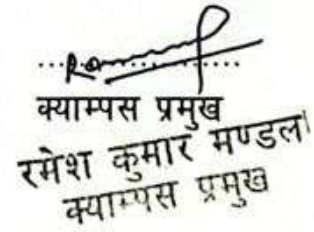 क्याम्पस प्रमुख
रमेश कुमार मण्डल
क्याम्पस प्रमुख